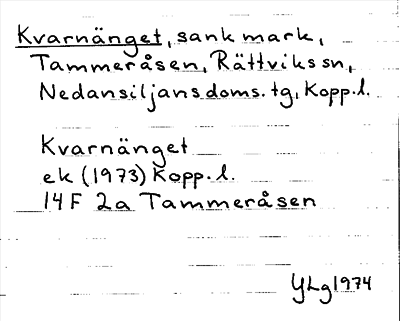 Kvarnänget, sank mark,
Tammeråsen, Rättviks sn,
Nedansiljans doms. tg, Kopp. l.
Kvarnänget
ek (1973) Kopp. l.
14 F 2a Tammeråsen
YLg 1974